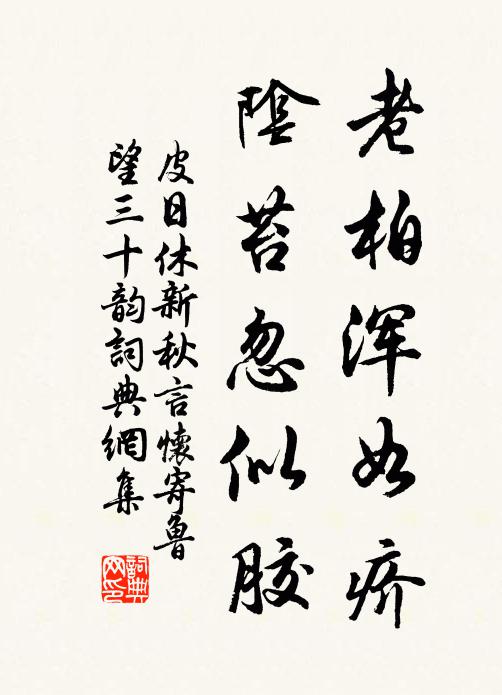 老柏浑如疥
陰苔忽似胶
皮日休新秋言懷寄魯
望三十韵詞典網集
詞典
网印